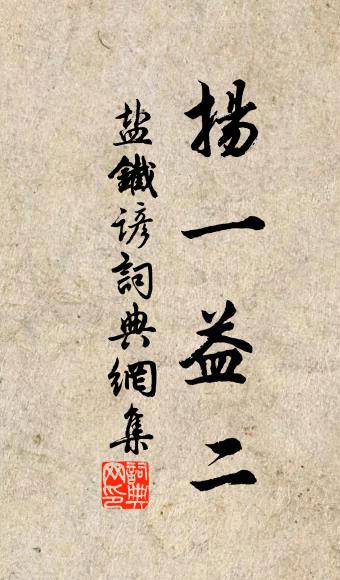 揚一益二
盐鐵諺詞典網集
詞典
网印